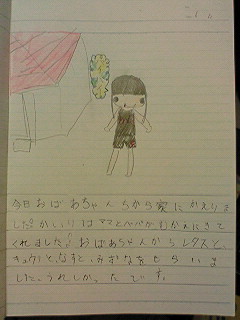 今日おばあちゃんちから家にかえりま
した。かえりはママとパパがむかえにきて
くれました。おばあちゃんからレタスと、
きゅうりと、なすと、みずなをもらいま
した。うれしかったです。